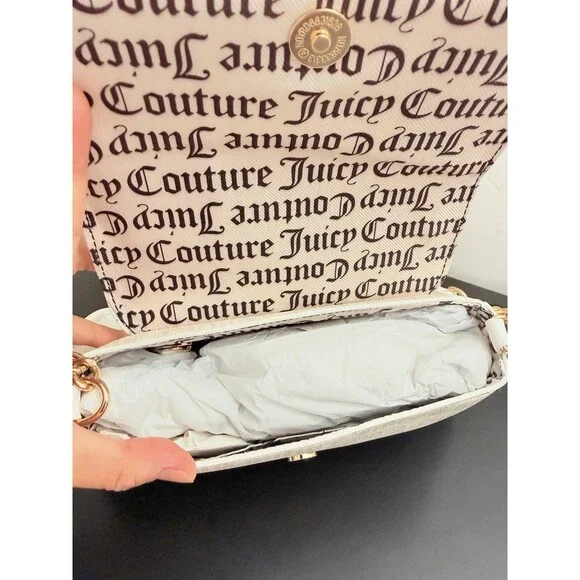 Couture Juicy Couture
Juicy Couture Juicy
Couture Juicy Couture
Juicy Couture Juicy
icy Couture Juicy Couture
Juicy Couture Juicy
uicy Couture Juicy Couture
Juicy Couture Juicy
icy Couture Juicy Couture